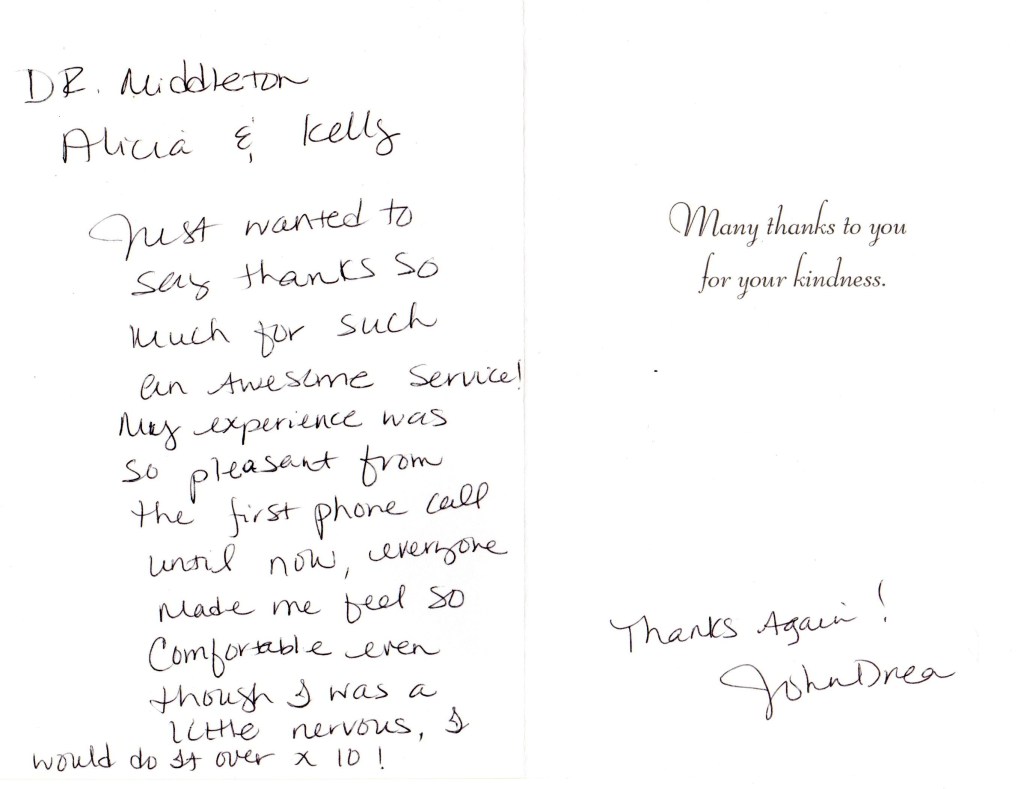 DR. Middleton
Alicia & Kelly
Just wanted to
say thanks so
much for such
an Awesome Service!
My experience was
so pleasant from
the first phone call
until now, everyone
made me feel so
Comfortable even
though I was a
little nervous, I
would do It over x 10!
Many thanks to you
for your kindness.
Thanks Again!
John Drea